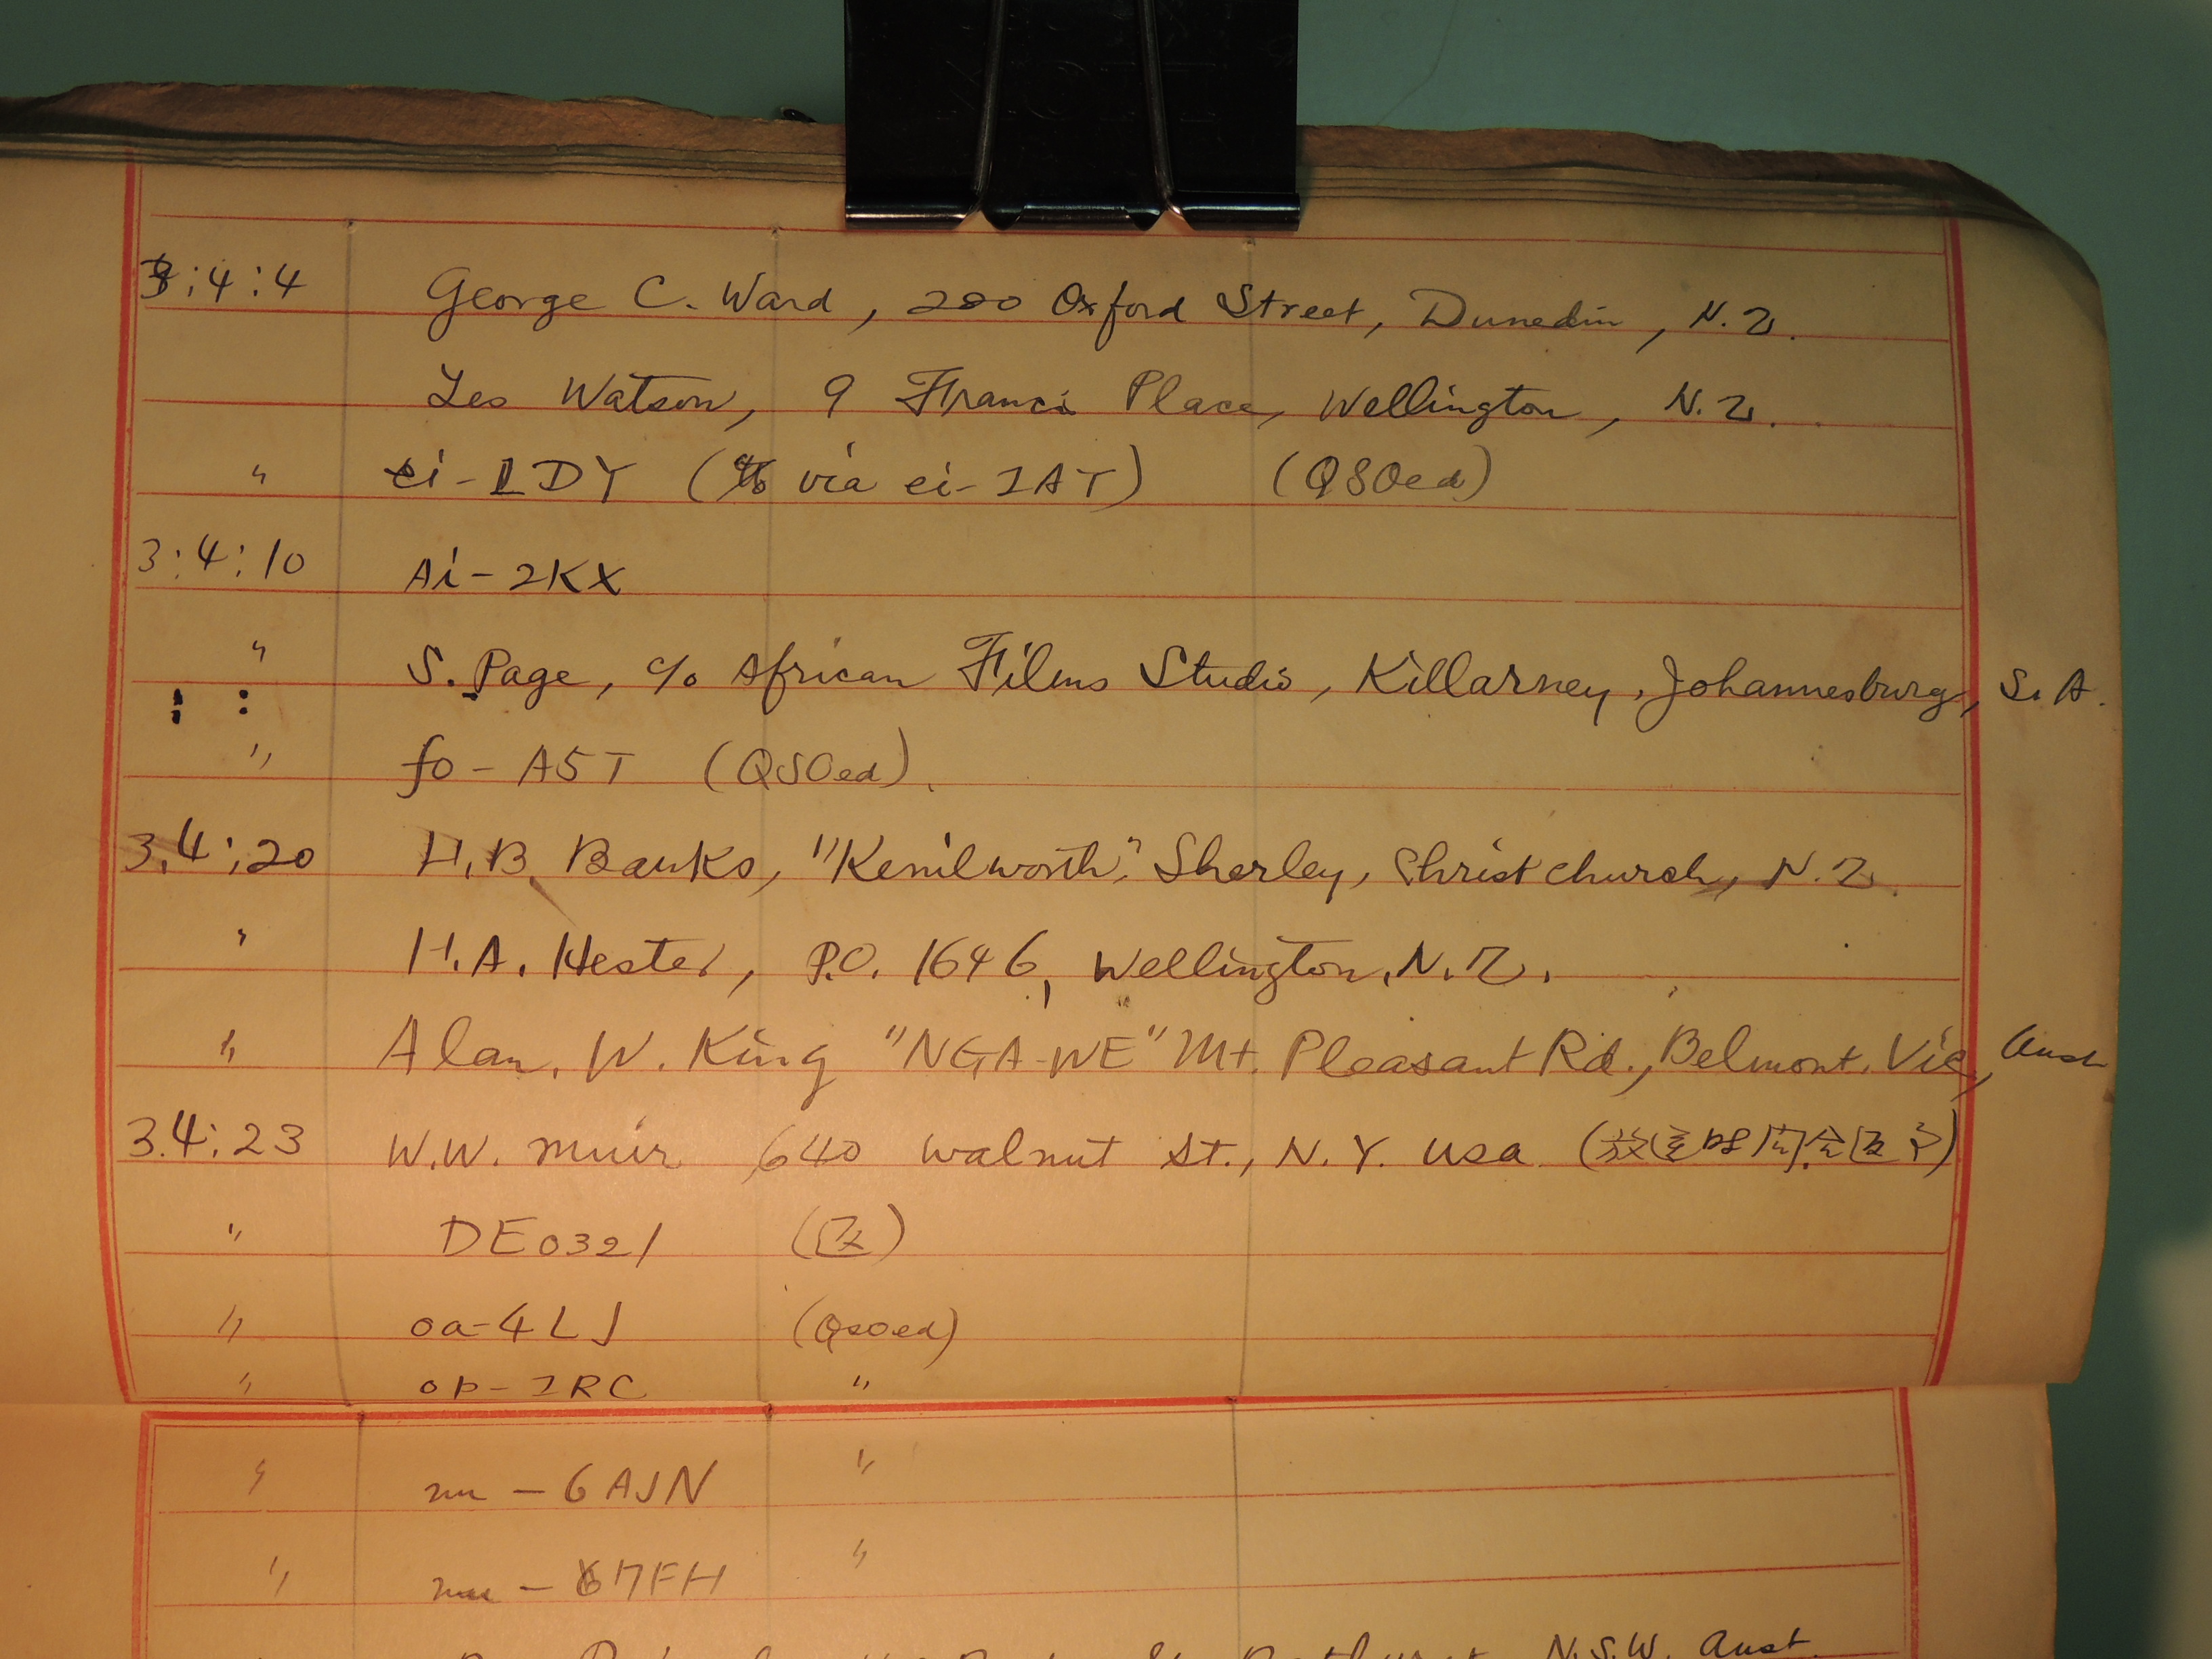 3:4:4 George C. Ward, 200 Oxford Street, Dunedin, N.Z.
Les Watson, 9 Franci Place, Wellington, N.Z.
〃 ei-1DY (via ei-1AT) (QSOed)
3:4:10 Ai-2KX
〃 S. Page, c/o African Films Studio, Killarney, Johannesburg, S.A.
〃 fo-A5T (QSOed).
3.4:20 H.B. Banks, "Kenilworth," Sherley, Christchurch, N.Z.
〃 H.A. Hester, P.O. 1646, Wellington, N.Z.
〃 Alan. W. King "NGA-WE" Mt. Pleasant Rd., Belmont, Vic, Aust
3.4:23 W.W. Muir 640 Walnut St., N.Y. USA.
〃 DE0321
〃 oa-4LJ (QSOed)
〃 op-1RC 〃
〃 nu-6AJN 〃
〃 〃
N.S.W. Aust.